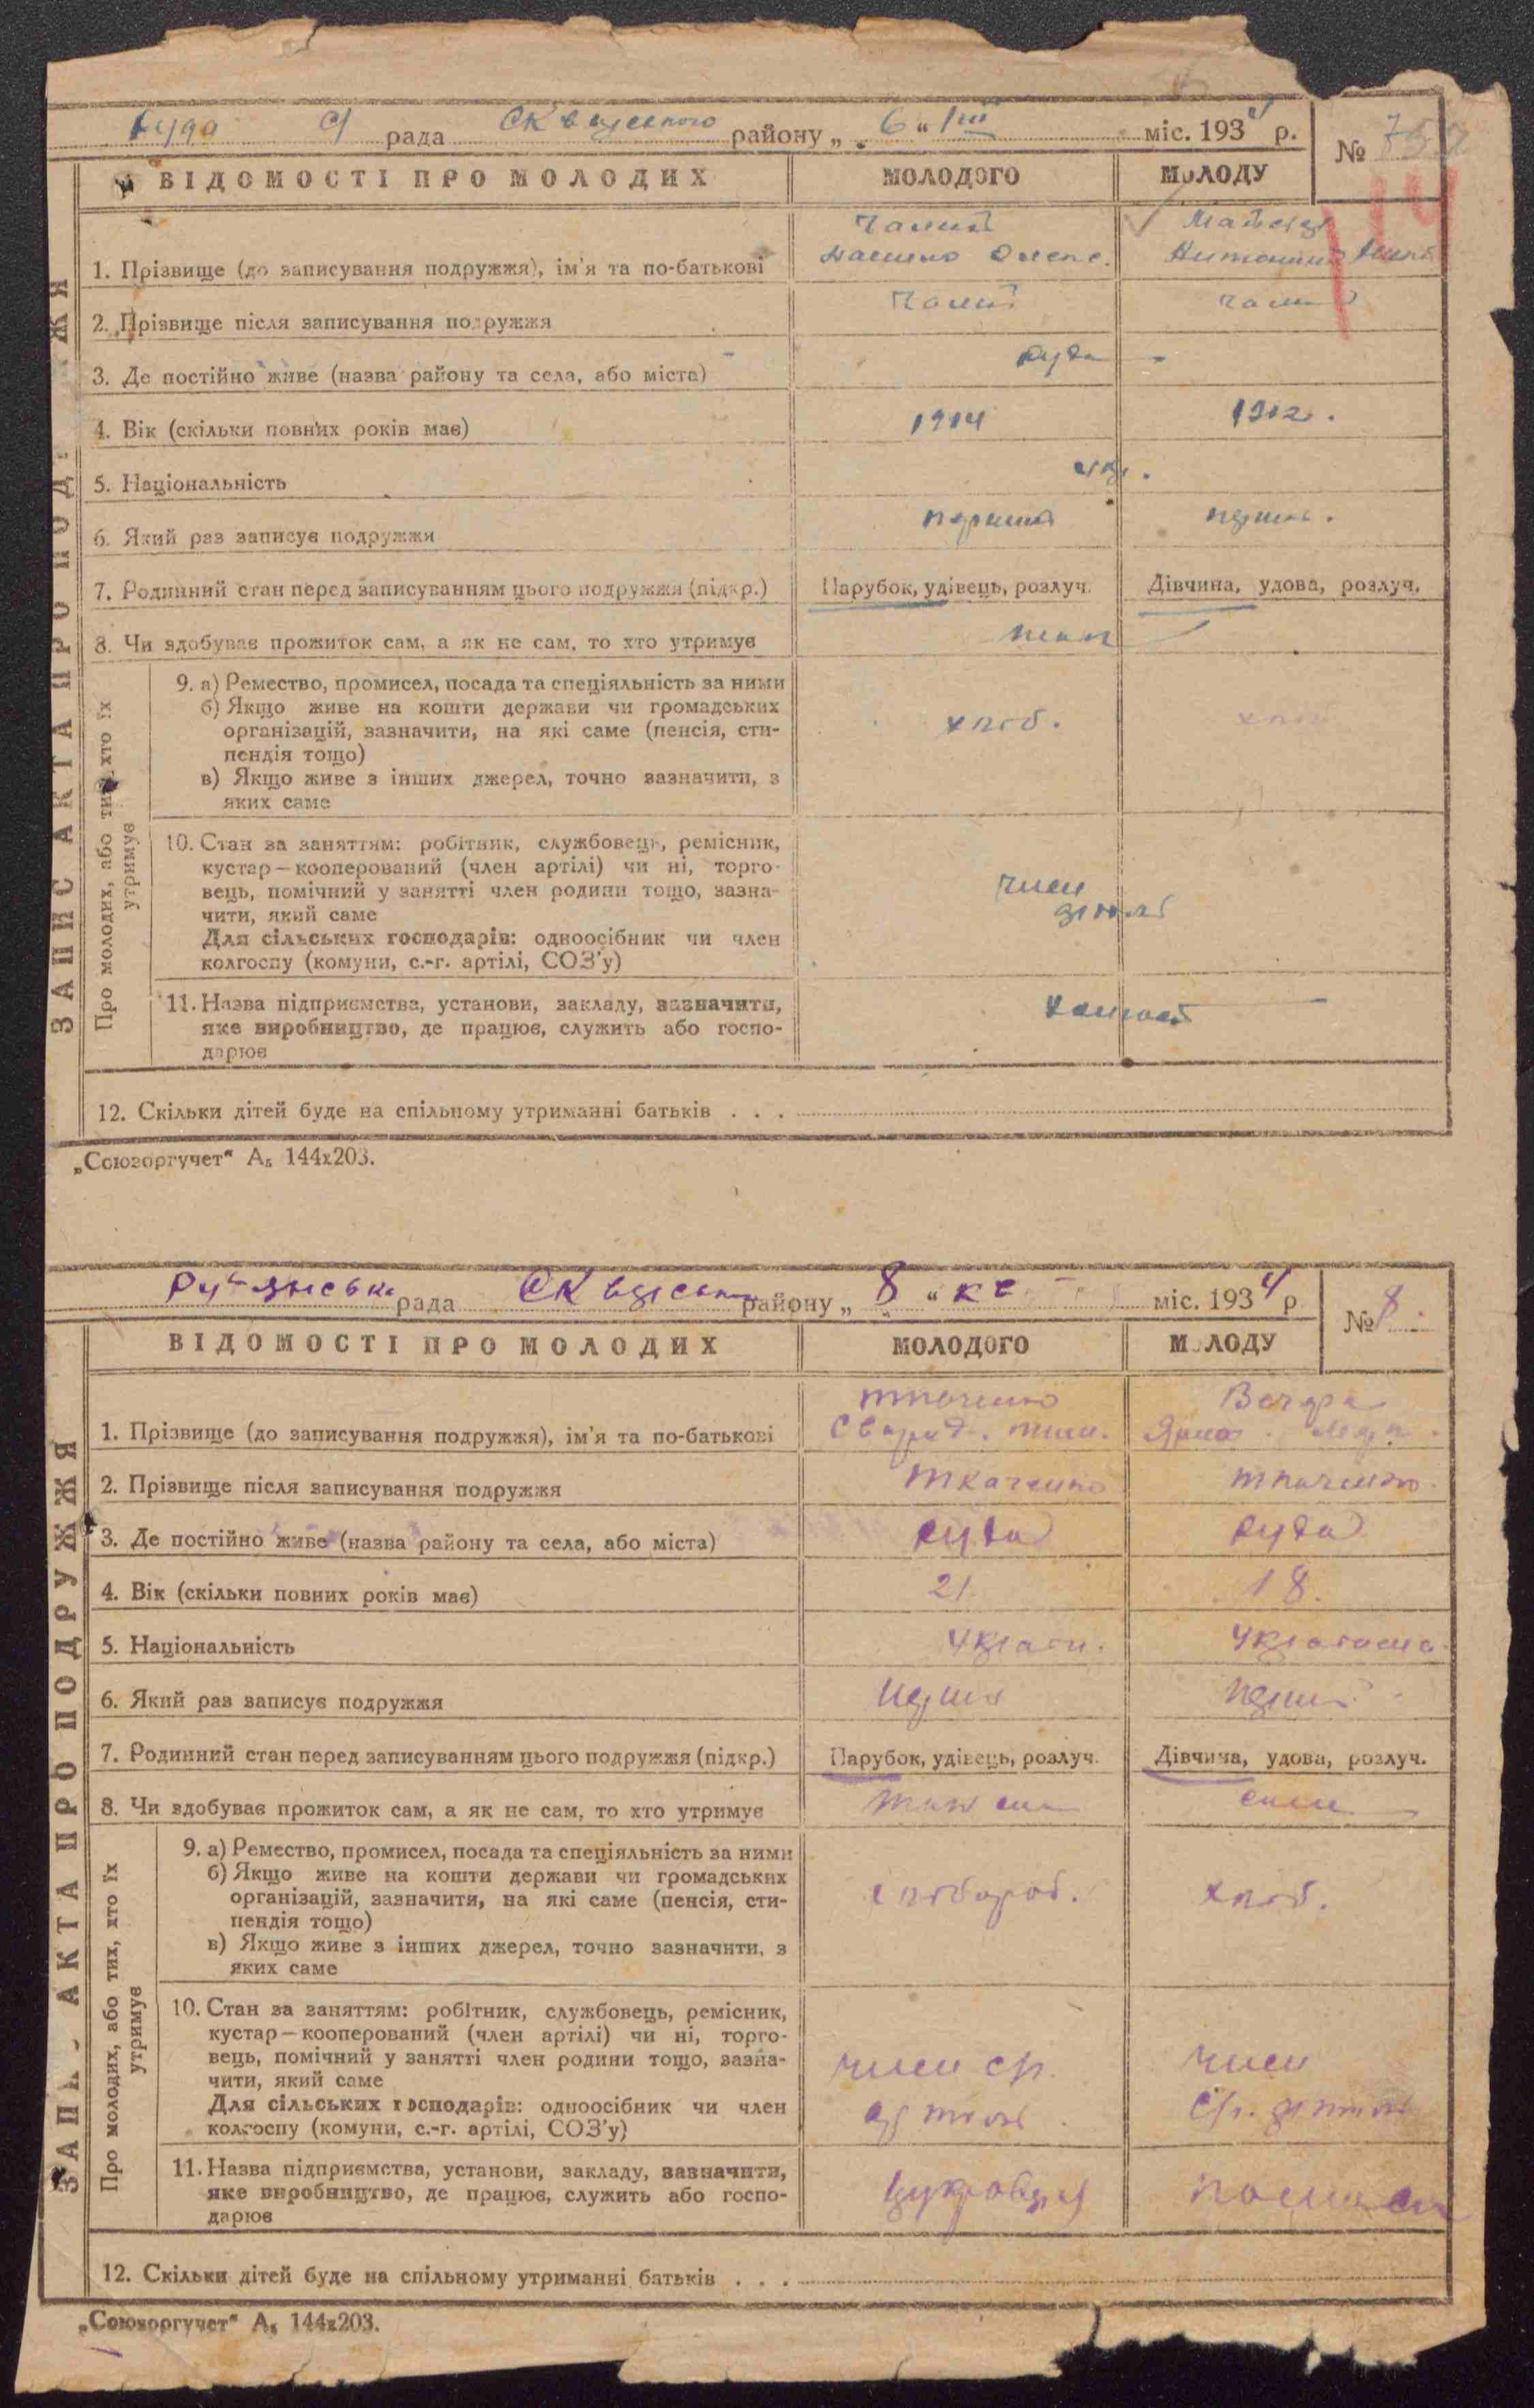 Руда с/ рада Сквирського району „ 6 “ ІІІ міс. 1934 р.
№
ВІДОМОСТІ ПРО МОЛОДИХ МОЛОДОГО МОЛОДУ
Чалий
1. Прізвище (до записування подружжя), ім'я та по-батькові
2. Прізвище після записування подружжя Чалий
3. Де постійно живе (назва району та села, або міста) Руда
4. Вік (скільки повних років має) 1914 1912.
5. Національність укр.
6. Який раз записує подружжя перший
7. Родинний стан перед записуванням цього подружжя (підкр.) Парубок, удівець, розлуч. Дівчина, удова, розлуч.
8. Чи здобуває прожиток сам, а як не сам, то хто утримує
ЗАПИС АКТА ПРО ПОДРУЖЖЯ
Про молодих, або тих, хто їх утримує
9. а) Ремество, промисел, посада та спеціяльність за ними
б) Якщо живе на кошти держави чи громадських
організацій, зазначити, на які саме (пенсія, сти-
пендія тощо)
хліб. хліб
в) Якщо живе з інших джерел, точно зазначити, з
яких саме
10. Стан за заняттям: робітник, службовець, ремісник,
кустар—кооперований (член артілі) чи ні, торго-
вець, помічний у занятті член родини тощо, зазна-
чити, який саме
член
Для сільських господарів: одноосібник чи член
колгоспу (комуни, с.-г. артілі, СОЗ'у)
11. Назва підприємства, установи, закладу, зазначити,
яке виробництво, де працює, служить або госпо-
дарює
12. Скільки дітей буде на спільному утриманні батьків . . .
„Союзоргучет“ А₅ 144х203.
рада району „ 8 “ міс. 1934 р
№ 8.
ВІДОМОСТІ ПРО МОЛОДИХ МОЛОДОГО МОЛОДУ
Ткаченко Вечеря
1. Прізвище (до записування подружжя), ім'я та по-батькові Свирид.
2. Прізвище після записування подружжя Ткаченко Ткаченко
3. Де постійно живе (назва району та села, або міста) Руда Руда
4. Вік (скільки повних років має) 21. 18.
5. Національність
6. Який раз записує подружжя
7. Родинний стан перед записуванням цього подружжя (підкр.) Парубок, удівець, розлуч. Дівчина, удова, розлуч.
8. Чи здобуває прожиток сам, а як не сам, то хто утримує
ЗАПИС АКТА ПРО ПОДРУЖЖЯ
Про молодих, або тих, хто їх утримує
9. а) Ремество, промисел, посада та спеціяльність за ними
б) Якщо живе на кошти держави чи громадських
організацій, зазначити, на які саме (пенсія, сти-
пендія тощо)
хлібороб. хліб.
в) Якщо живе з інших джерел, точно зазначити, з
яких саме
10. Стан за заняттям: робітник, службовець, ремісник,
кустар—кооперований (член артілі) чи ні, торго-
вець, помічний у занятті член родини тощо, зазна-
чити, який саме
член член
Для сільських господарів: одноосібник чи член
колгоспу (комуни, с.-г. артілі, СОЗ'у)
11. Назва підприємства, установи, закладу, зазначити,
яке виробництво, де працює, служить або госпо-
дарює
12. Скільки дітей буде на спільному утриманні батьків . . .
„Союзоргучет“ А₅ 144х203.